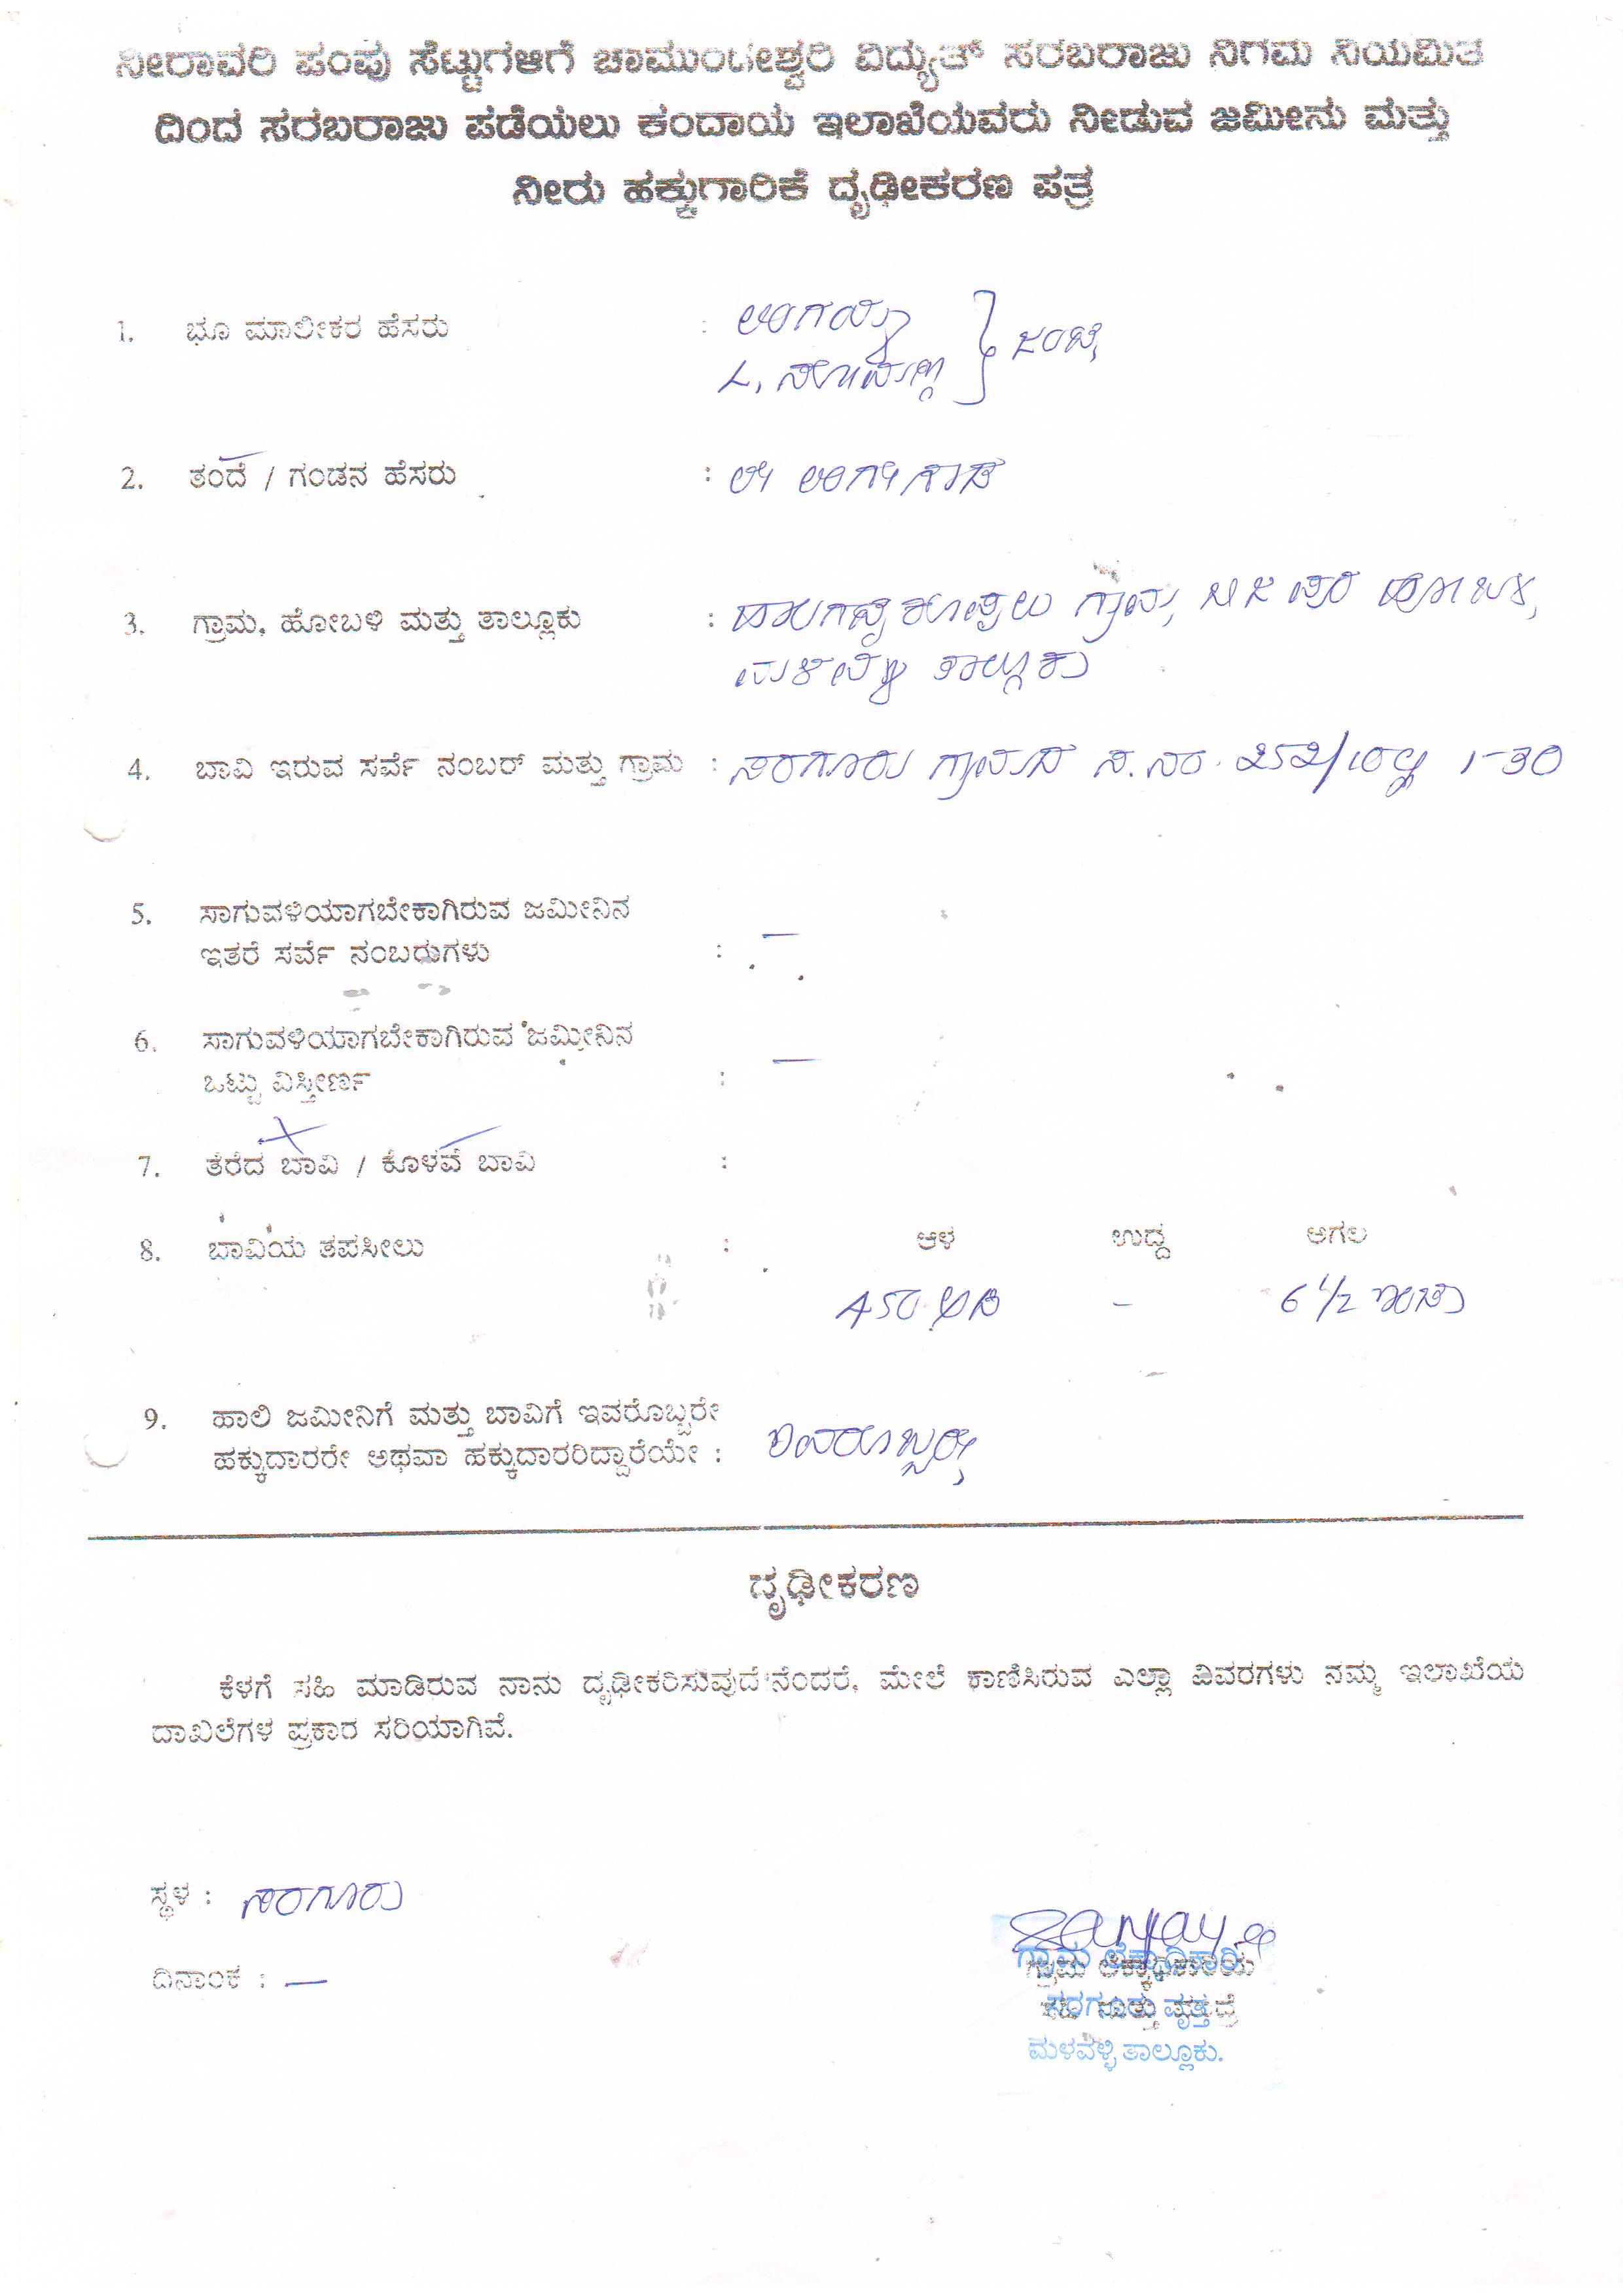 ನೀರಾವರಿ ಪಂಪು ಸೆಟ್ಟುಗಳಿಗೆ ಚಾಮುಂಡೇಶ್ವರಿ ವಿದ್ಯುತ್ ಸರಬರಾಜು ನಿಗಮ ನಿಯಮಿತ
ದಿಂದ ಸರಬರಾಜು ಪಡೆಯಲು ಕಂದಾಯ ಇಲಾಖೆಯವರು ನೀಡುವ ಜಮೀನು ಮತ್ತು
ನೀರು ಹಕ್ಕುಗಾರಿಕೆ ದೃಢೀಕರಣ ಪತ್ರ
1. ಭೂ ಮಾಲೀಕರ ಹೆಸರು : ಲಿಂಗಯ್ಯ
L. ಸೋಮಣ್ಣ } ಜಂಟಿ
2. ತಂದೆ / ಗಂಡನ ಹೆಸರು :
3. ಗ್ರಾಮ, ಹೋಬಳಿ ಮತ್ತು ತಾಲ್ಲೂಕು : ಗ್ರಾಮ, ಬಿ.ಜಿ ಪುರ ಹೋಬಳಿ,
ಮಳವಳ್ಳಿ ತಾಲ್ಲೂಕು
4. ಬಾವಿ ಇರುವ ಸರ್ವೆ ನಂಬರ್ ಮತ್ತು ಗ್ರಾಮ : ಸರಗೂರು ಗ್ರಾಮದ ಸ.ನಂ. 252/10ರಲ್ಲಿ 1-30
5. ಸಾಗುವಳಿಯಾಗಬೇಕಾಗಿರುವ ಜಮೀನಿನ
ಇತರೆ ಸರ್ವೆ ನಂಬರುಗಳು : —
6. ಸಾಗುವಳಿಯಾಗಬೇಕಾಗಿರುವ ಜಮೀನಿನ
ಒಟ್ಟು ವಿಸ್ತೀರ್ಣ : —
7. ತೆರೆದ ಬಾವಿ / ಕೊಳವೆ ಬಾವಿ :
8. ಬಾವಿಯ ತಪಸೀಲು : ಆಳ ಉದ್ದ ಅಗಲ
450 ಅಡಿ - 6 1/2 ಇಂಚು
9. ಹಾಲಿ ಜಮೀನಿಗೆ ಮತ್ತು ಬಾವಿಗೆ ಇವರೊಬ್ಬರೇ
ಹಕ್ಕುದಾರರೇ ಅಥವಾ ಹಕ್ಕುದಾರರಿದ್ದಾರೆಯೇ : ಇವರೊಬ್ಬರೇ
ದೃಢೀಕರಣ
ಕೆಳಗೆ ಸಹಿ ಮಾಡಿರುವ ನಾನು ದೃಢೀಕರಿಸುವುದೆನೆಂದರೆ, ಮೇಲೆ ಕಾಣಿಸಿರುವ ಎಲ್ಲಾ ವಿವರಗಳು ನಮ್ಮ ಇಲಾಖೆಯ
ದಾಖಲೆಗಳ ಪ್ರಕಾರ ಸರಿಯಾಗಿವೆ.
ಸ್ಥಳ : ಸರಗೂರು
Sanjay
ಗ್ರಾಮ ಲೆಕ್ಕಾಧಿಕಾರಿ
ದಿನಾಂಕ : —
ಸರಗೂರು ವೃತ್ತ
ಮಳವಳ್ಳಿ ತಾಲ್ಲೂಕು.